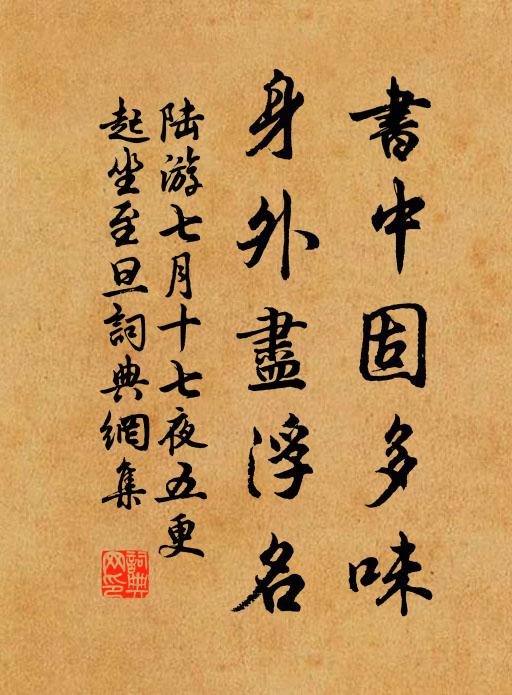 書中固多味
身外盡浮名
陆游七月十七夜五更
起坐至旦詞典網集
詞典
网印